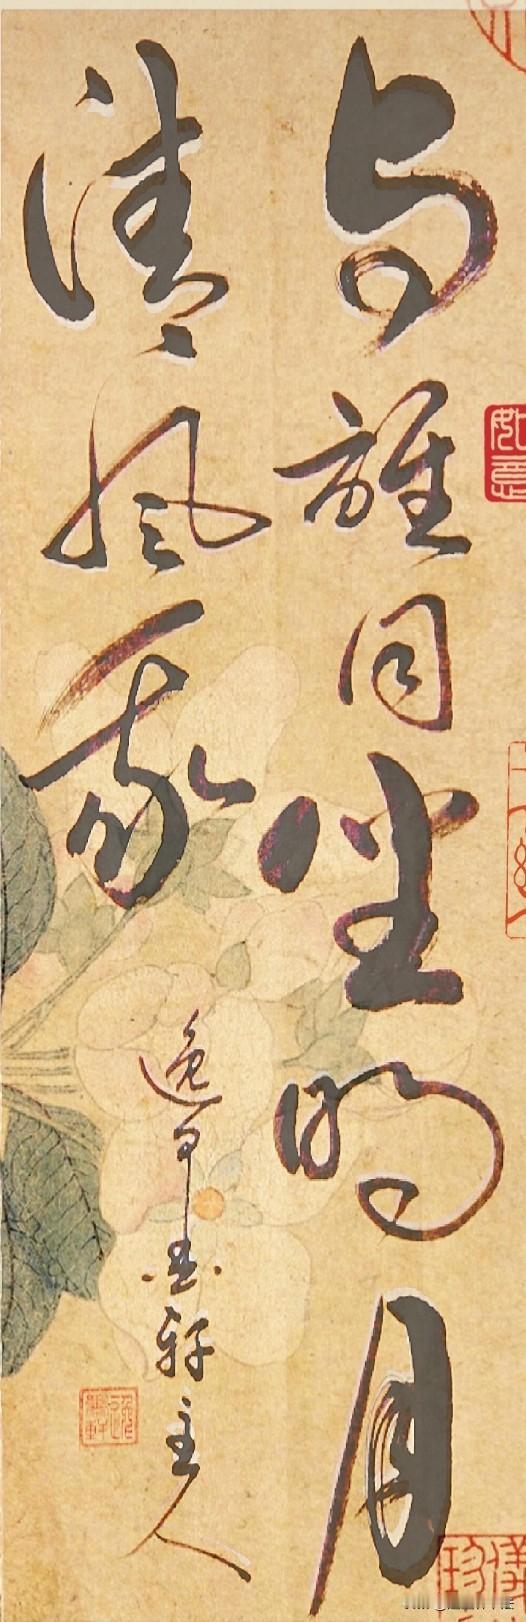 与谁同坐明月
清风我
逸轩主人
如意